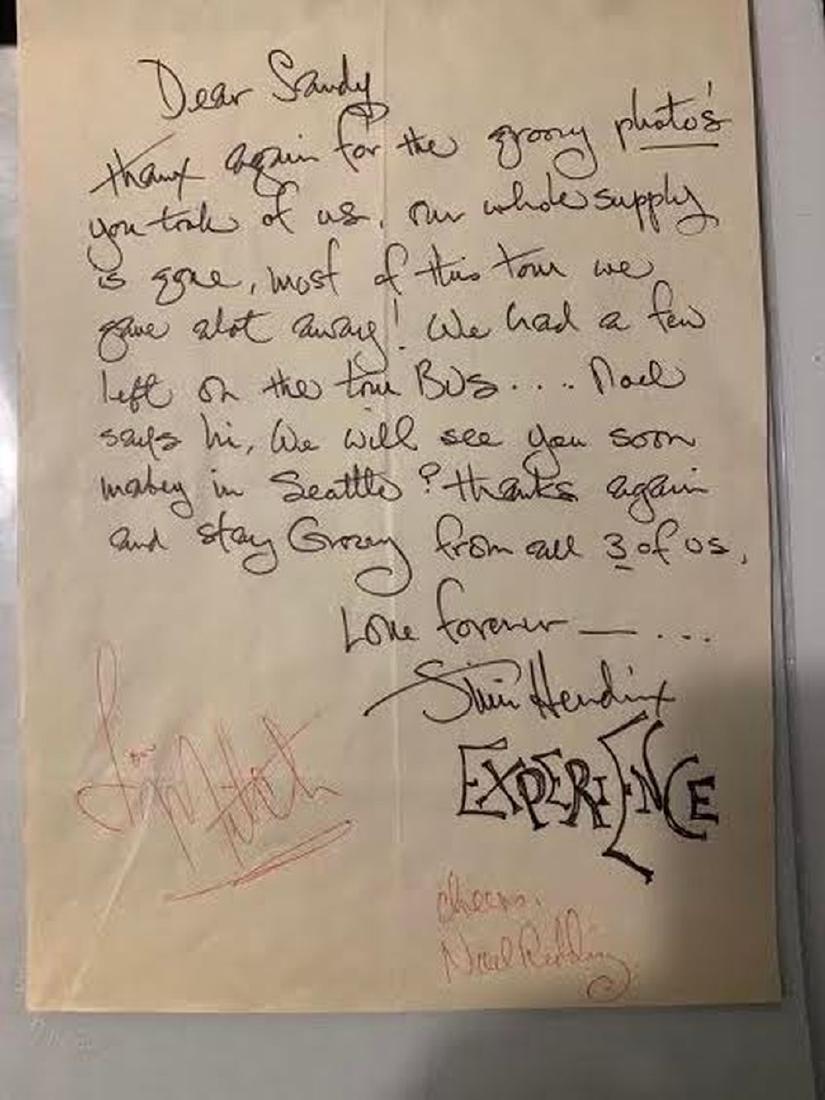 Dear Sandy
thanx again for the groovy photo's
you took of us. our whole supply
is gone, most of this tour we
gave alot away! We had a few
left on the tour BUS.... Noel
says hi, We will see you soon
mabey in Seattle? thanks again
and stay Groovy from all 3 of us,
Love forever — ...
Jimi Hendrix
EXPERIENCE
Mitch
cheers.
Noel Redding